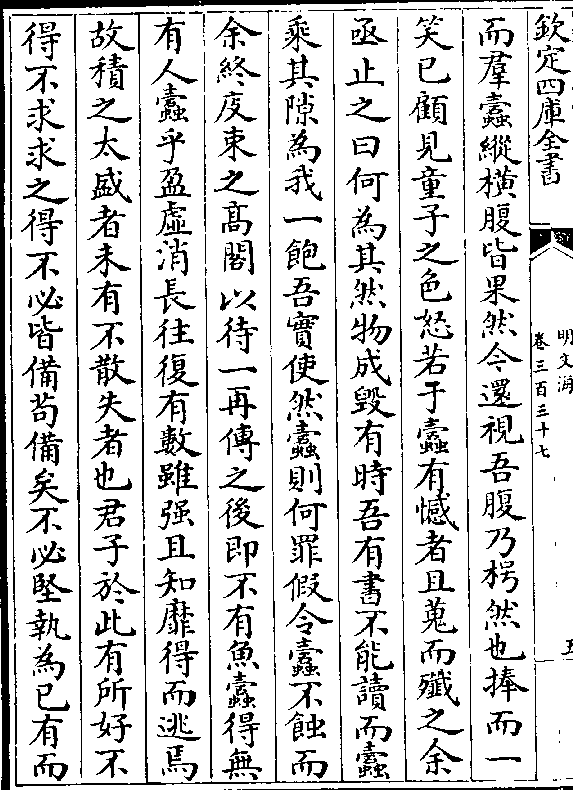 欽定四庫全書
明文海
卷三百三十七
五
而羣蠹縱橫腹皆果然今還視吾腹乃枵然也捧而一
笑已顧見童子之色怒若于蠹有憾者且蒐而殲之余
亟止之曰何為其然物成毀有時吾有書不能讀而蠹
乘其隙為我一飽吾實使然蠹則何罪假令蠹不蝕而
余終度束之髙閣以待一再傳之後即不有魚蠹得無
有人蠹乎盈虛消長往復有數雖强且知靡得而逃焉
故積之太盛者未有不散失者也君子於此有所好不
得不求求之得不必皆備茍備矣不必堅執為已有而